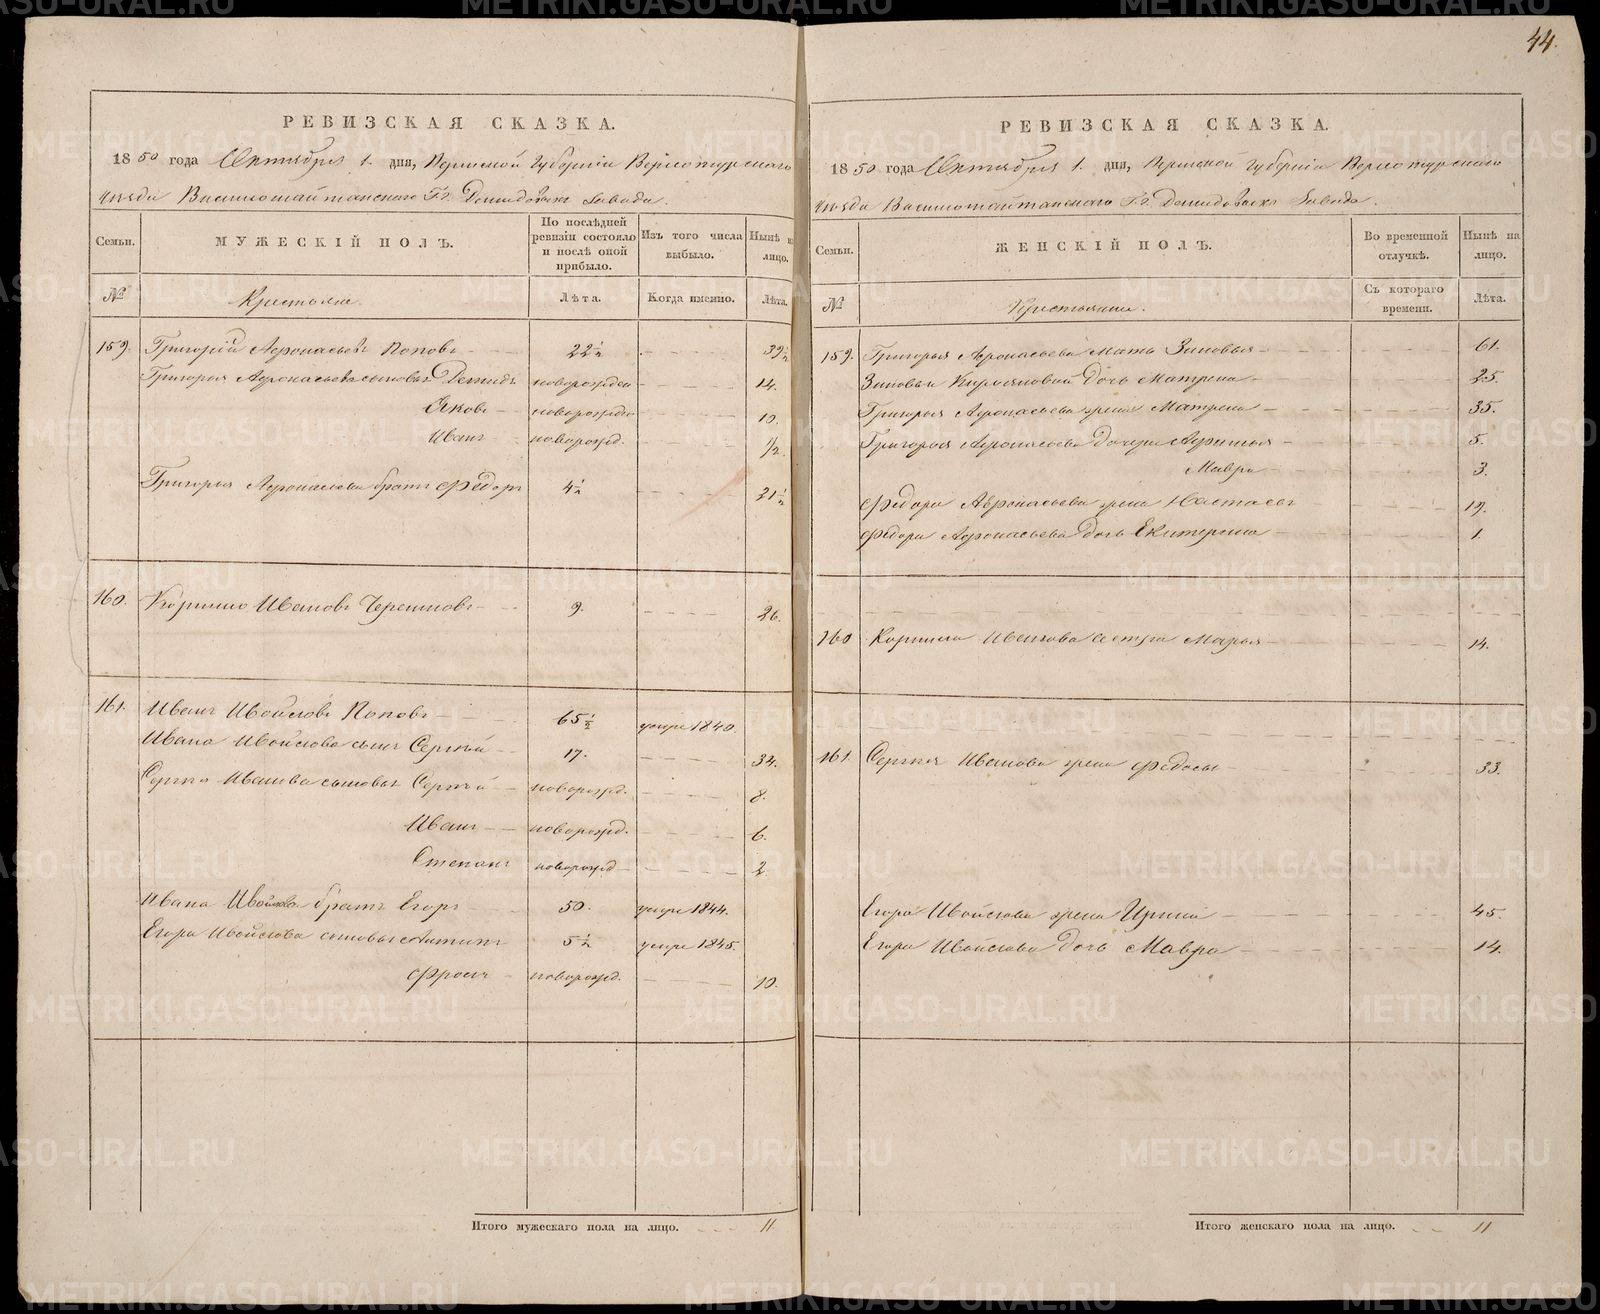 44.
РЕВИЗСКАЯ СКАЗКА.
1850 года Октября 1. дня, Пермской Губерніи Верхотурскаго
уѣзда Висимошайтанскаго Гг. Демидовыхъ Завода.
Семьи. МУЖЕСКІЙ ПОЛЪ. По послѣдней ревизіи состояло и послѣ оной прибыло. Изъ того числа выбыло. Нынѣ на лицо.
№ Крестьяне. Лѣта. Когда именно. Лѣта.
159. Григорій Афонасьевъ Поповъ 22½ 39½
Григорья Афонасьева сыновья Демидъ новорожден 14.
Яковъ новорожден 10.
Иванъ новорожд. ½
Григорья Афонасьева братъ Федоръ 4½ 21½
160. Корнило Ивановъ 9. 26.
161. Иванъ Поповъ 65½ умре 1840.
Ивана сынъ Сергѣй 17. 34.
Сергѣя Иванова сыновья Сергѣй новорожд. 8.
Иванъ новорожд. 6.
Степанъ новорожд 2
Ивана братъ Егоръ 50. умре 1844.
Егора сыновья 5½ умре 1845.
Фролъ новорожд. 10.
Итого мужескаго пола на лицо. 11
РЕВИЗСКАЯ СКАЗКА.
1850 года Октября 1. дня, Пермской Губерніи Верхотурскаго
уѣзда Висимошайтанскаго Гг. Демидовыхъ Завода.
Семьи. ЖЕНСКІЙ ПОЛЪ. Во временной отлучкѣ. Нынѣ на лицо.
№ Крестьянки. Съ котораго времени. Лѣта.
159. Григорья Афонасьева мать Зиновья 61.
Зиновьи дочь Матрена 25.
Григорья Афонасьева жена Матрена 35.
Григорья Афонасьева дочери Афимья 5.
Мавра 3.
Федора Афонасьева жена Настасья 19.
Федора Афонасьева дочь Екатерина 1.
160 Корнила Иванова сестра Марья 14.
161. Сергѣя Иванова жена Федосья 33.
Егора жена Ирина 45.
Егора дочь Мавра 14.
Итого женскаго пола на лицо. 11
METRIKI.GASO-URAL.RU